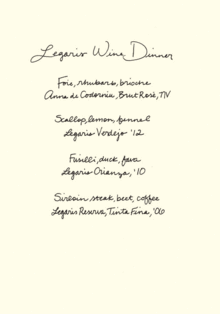 Legaris Wine Dinner
Foie, rhubarb, brioche
Anna de Codorníu, Brut Rosé, NV
Scallop, lemon, fennel
Legaris Verdejo '12
Fusilli, duck, fava
Legaris Crianza, '10
Sirloin steak, beet, coffee
Legaris Reserva, Tinta Fina, '06